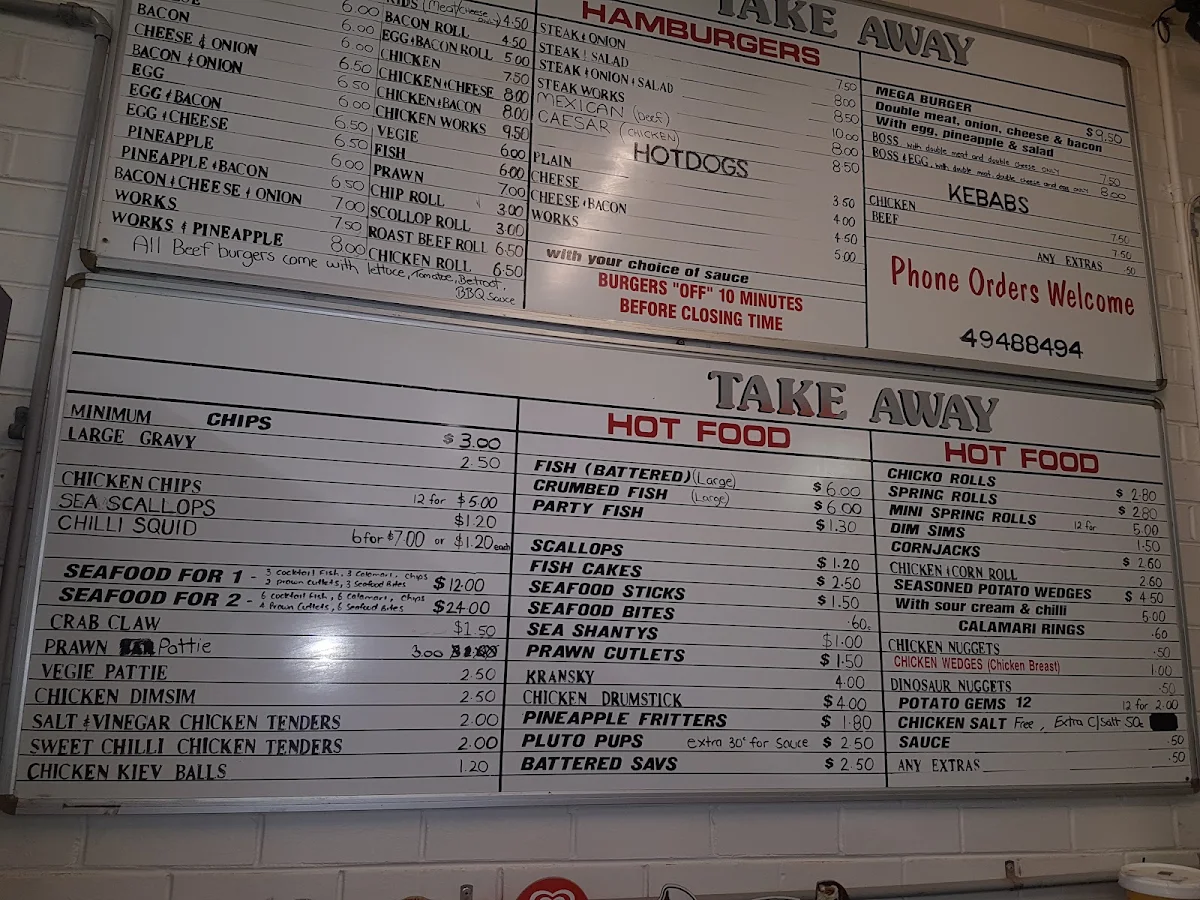 TAKE AWAY
HAMBURGERS
BACON 6.00
CHEESE & ONION 6.50
BACON & ONION 6.50
EGG 6.00
EGG & BACON 6.50
EGG & CHEESE 6.50
PINEAPPLE 6.00
PINEAPPLE & BACON 6.50
BACON & CHEESE & ONION 7.00
WORKS 7.50
WORKS & PINEAPPLE 8.00
All Beef burgers come with lettoce, Tomatoe, Betroot, BBQ Sauce
KIDS (Meat/cheese only) 4.50
BACON ROLL 4.50
EGG & BACON ROLL 5.00
CHICKEN 7.50
CHICKEN & CHEESE 8.00
CHICKEN & BACON 8.00
CHICKEN WORKS 9.50
VEGIE 6.00
FISH 6.00
PRAWN 7.00
CHIP ROLL 3.00
SCOLLOP ROLL 3.00
ROAST BEEF ROLL 6.50
CHICKEN ROLL 6.50
STEAK & ONION 7.50
STEAK & SALAD 8.00
STEAK & ONION & SALAD 8.50
STEAK WORKS 10.00
MEXICAN (beef) 8.00
CAESAR (CHICKEN) 8.50
HOTDOGS
PLAIN 3.50
CHEESE 4.00
CHEESE & BACON 4.50
WORKS 5.00
with your choice of sauce
BURGERS "OFF" 10 MINUTES
BEFORE CLOSING TIME
MEGA BURGER $9.50
Double meat, onion, cheese & bacon
With egg, pineapple & salad
BOSS with double meat and double cheese only 7.50
BOSS & EGG with double meat, double cheese and egg only 8.00
KEBABS
CHICKEN 7.50
BEEF 7.50
ANY EXTRAS .50
Phone Orders Welcome
49488494
TAKE AWAY
CHIPS
MINIMUM $3.00
LARGE GRAVY 2.50
CHICKEN CHIPS 12 for $5.00
SEA SCALLOPS $1.20
CHILLI SQUID 6 for $7.00 or $1.20 each
SEAFOOD FOR 1 - 3 cocktail Fish, 3 Calamari, Chips 2 prawn cutlets, 3 Seafood Bites $12.00
SEAFOOD FOR 2 - 6 cocktail Fish, 6 Calamari, Chips 4 Prawn Cutlets, 6 Seafood Bites $24.00
CRAB CLAW $1.50
PRAWN Pattie 3.00
VEGIE PATTIE 2.50
CHICKEN DIMSIM 2.50
SALT & VINEGAR CHICKEN TENDERS 2.00
SWEET CHILLI CHICKEN TENDERS 2.00
CHICKEN KIEV BALLS 1.20
HOT FOOD
FISH (BATTERED) (Large) $6.00
CRUMBED FISH (Large) $6.00
PARTY FISH $1.30
SCALLOPS $1.20
FISH CAKES $2.50
SEAFOOD STICKS $1.50
SEAFOOD BITES .60c
SEA SHANTYS $1.00
PRAWN CUTLETS $1.50
KRANSKY 4.00
CHICKEN DRUMSTICK $4.00
PINEAPPLE FRITTERS $1.80
PLUTO PUPS extra 30c for Sauce $2.50
BATTERED SAVS $2.50
HOT FOOD
CHICKO ROLLS $2.80
SPRING ROLLS $2.80
MINI SPRING ROLLS 12 for 5.00
DIM SIMS 1.50
CORNJACKS $2.60
CHICKEN & CORN ROLL 2.60
SEASONED POTATO WEDGES $4.50
With sour cream & chilli 5.00
CALAMARI RINGS .60
CHICKEN NUGGETS .50
CHICKEN WEDGES (Chicken Breast) 1.00
DINOSAUR NUGGETS .50
POTATO GEMS 12 12 for 2.00
CHICKEN SALT Free, Extra C/Salt 50c
SAUCE .50
ANY EXTRAS .50